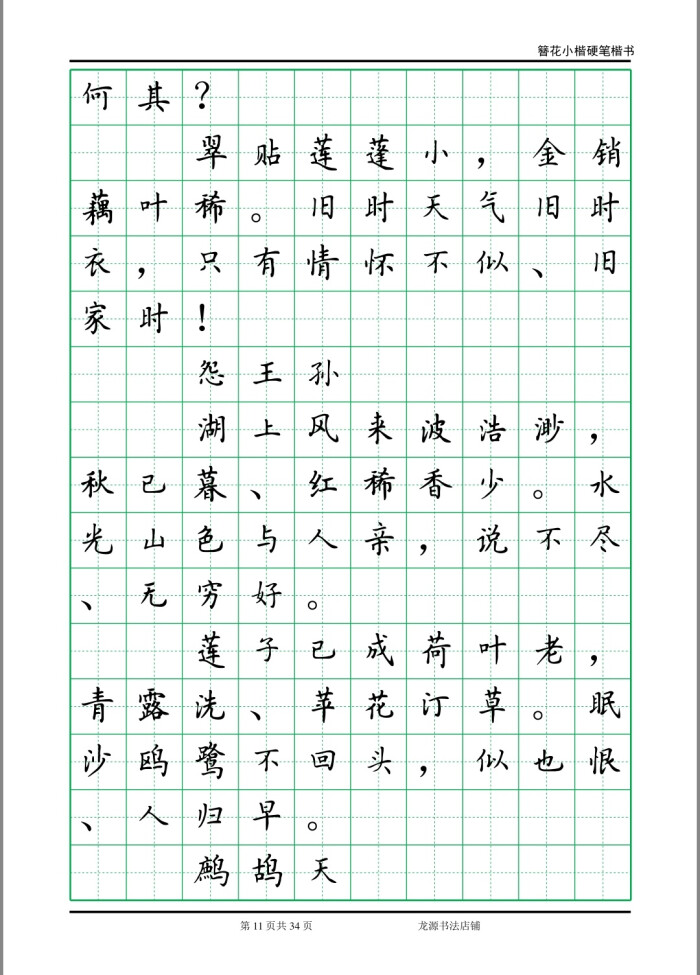 簪花小楷硬笔楷书
何其？
翠贴莲蓬小，金销
藕叶稀。旧时天气旧时
衣，只有情怀不似、旧
家时！
怨王孙
湖上风来波浩渺，
秋已暮、红稀香少。水
光山色与人亲，说不尽
、无穷好。
莲子已成荷叶老，
青露洗、苹花汀草。眠
沙鸥鹭不回头，似也恨
、人归早。
鹧鸪天
第 11 页共 34 页 龙源书法店铺